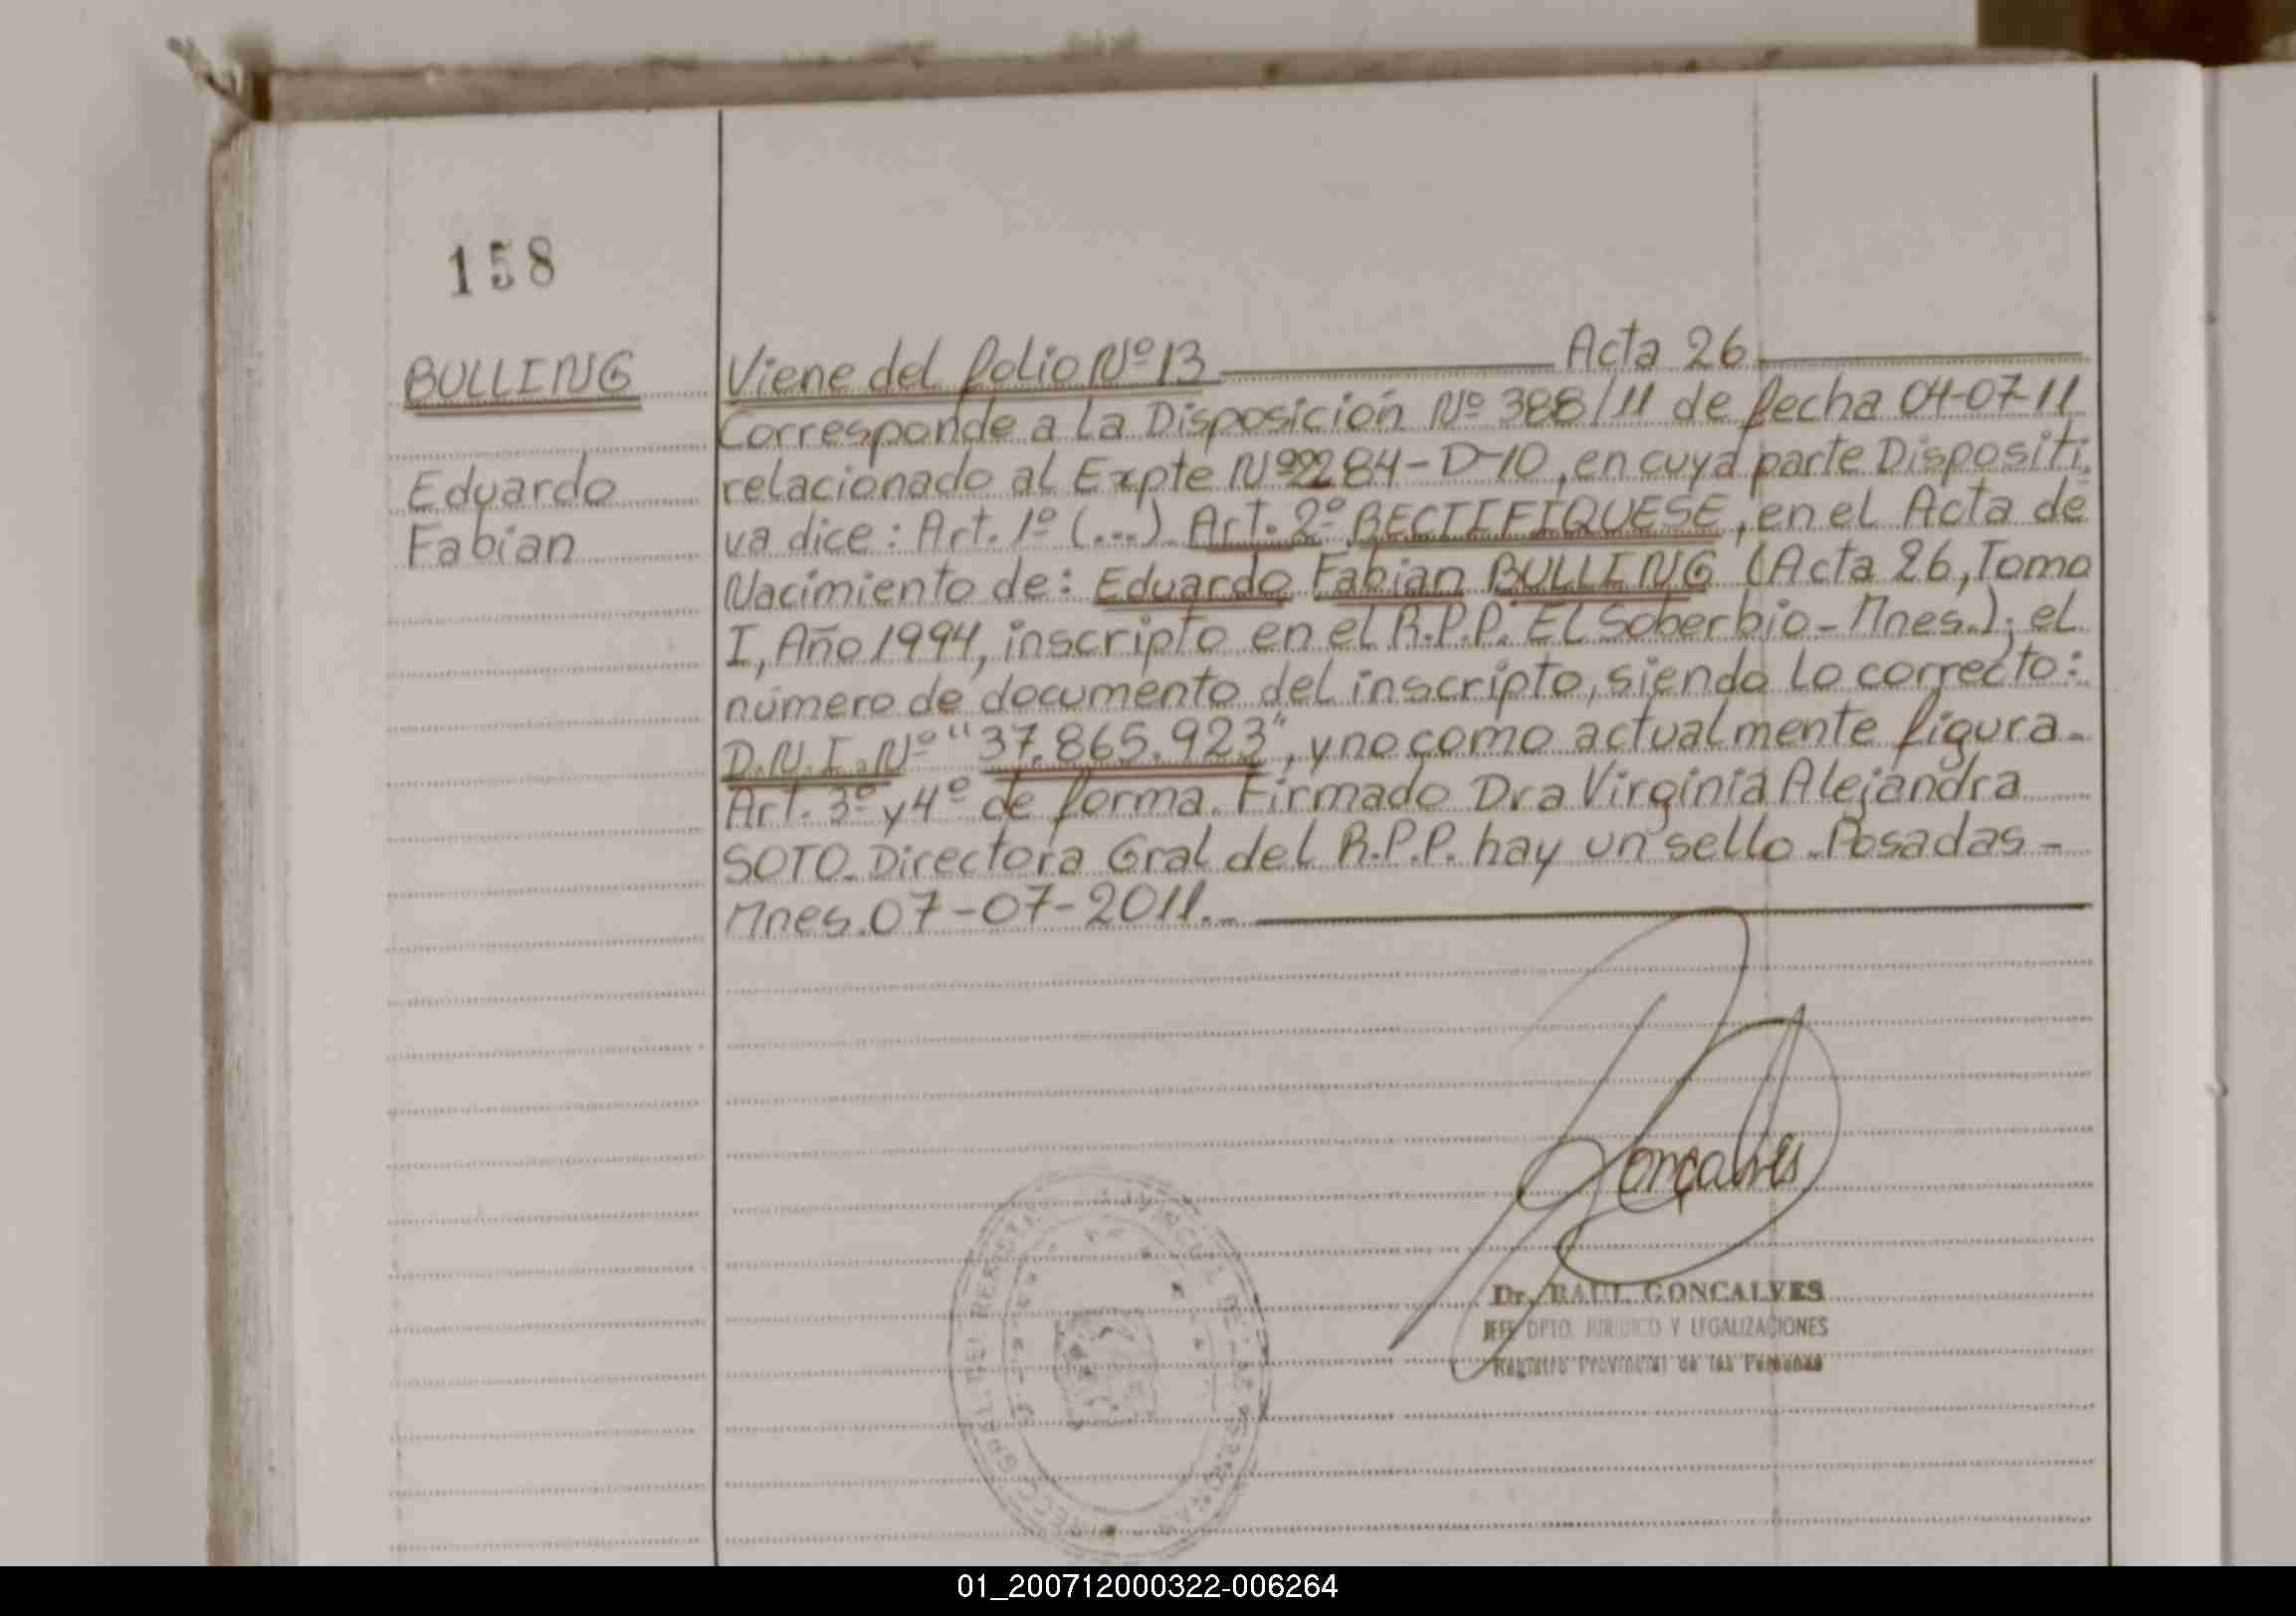 158
BULLING
Eduardo
Fabian
Viene del folio Nº 13 Acta 26
Corresponde a la Disposición Nº 388/11 de fecha 04-07-11
relacionado al Expte Nº 2284-D-10, en cuya parte Dispositi
va dice: Art. 1º (...). Art. 2º RECTIFIQUESE, en el Acta de
Nacimiento de: Eduardo Fabian BULLING (Acta 26, Tomo
I, Año 1994, inscripto en el R.P.P. El Soberbio - Mnes.); el
número de documento del inscripto, siendo lo correcto:
D.N.I. Nº "37.865.923", y no como actualmente figura.
Art. 3º y 4º de forma. Firmado Dra Virginia Alejandra
SOTO. Directora Gral del R.P.P. hay un sello. Posadas -
Mnes. 07-07-2011.-
Gonçalves
Dr. RAUL GONCALVES
JEFE DPTO. JURIDICO Y LEGALIZACIONES
Registro Provincial de las Personas
01_200712000322-006264